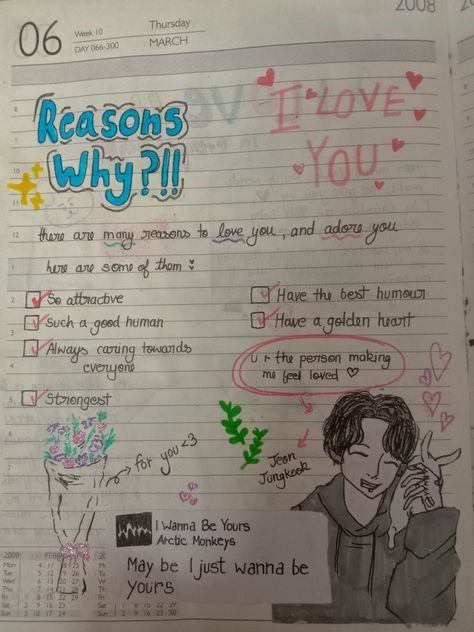 2008
06
Week 10
DAY 066-300
Thursday
MARCH
Reasons
Why?!!
I LOVE
YOU
there are many reasons to love you, and adore you
here are some of them
So attractive
Such a good human
Always caring towards
everyone
Strongest
Have the best humour
Have a golden heart
u r the person making
me feel loved ♡
for you <3
Jeon
Jungkook
I Wanna Be Yours
Arctic Monkeys
May be I just wanna be
yours